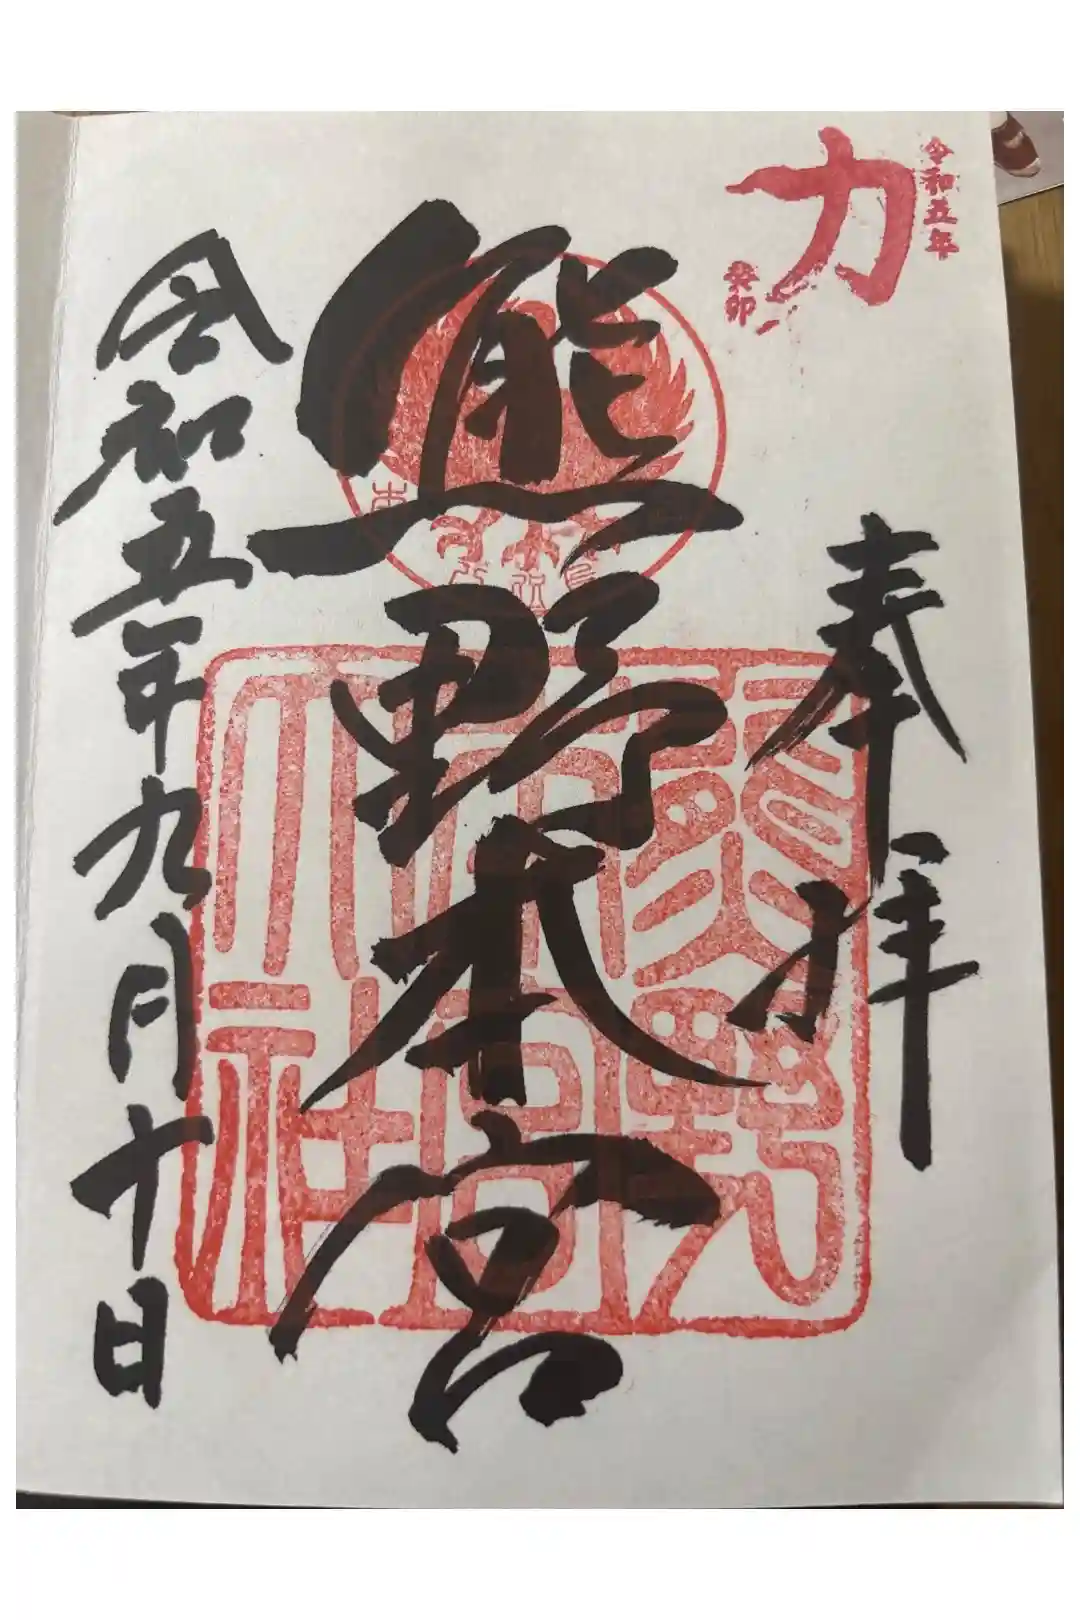 令和五年
力
癸卯
奉拝
熊野本宮
熊野本宮大社
令和五年九月十日